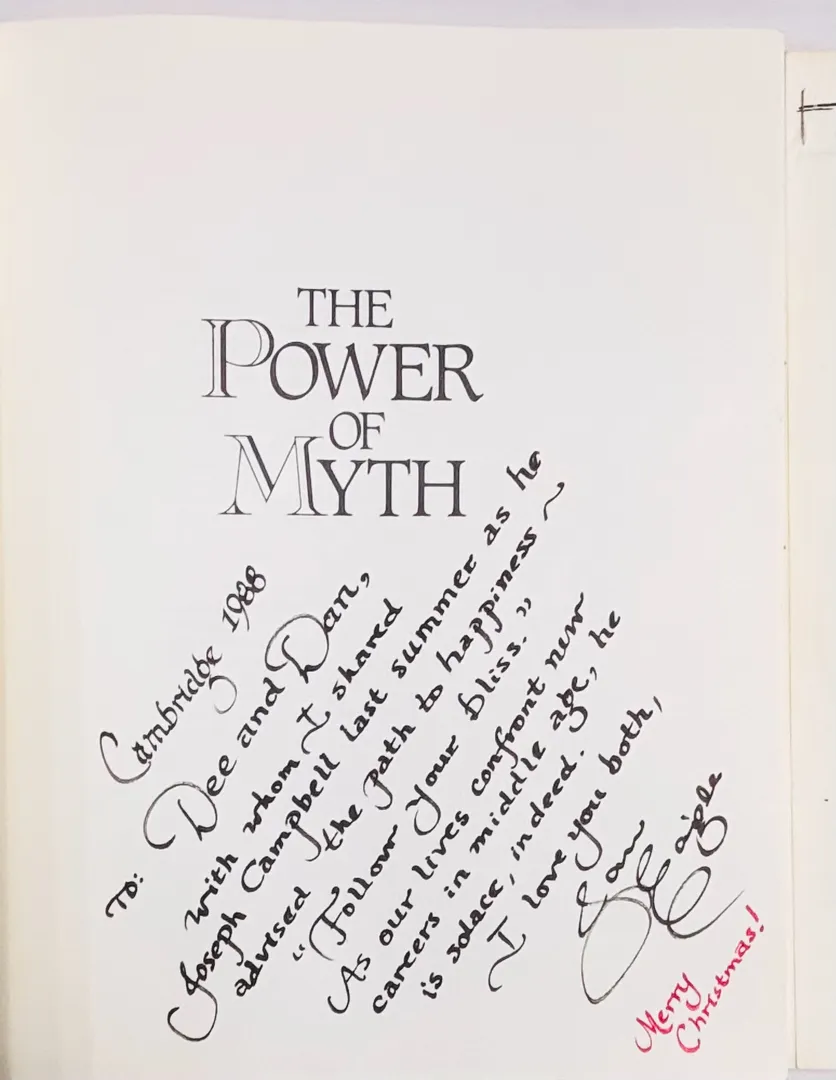 THE
POWER
OF
MYTH
Cambridge 1988
To: Dee and Dan,
with whom I shared
Joseph Campbell last summer as he
advised the path to happiness ~
"Follow your bliss."
As our lives confront new
careers in middle age, he
is solace, indeed.
I love you both,
Merry
Christmas!